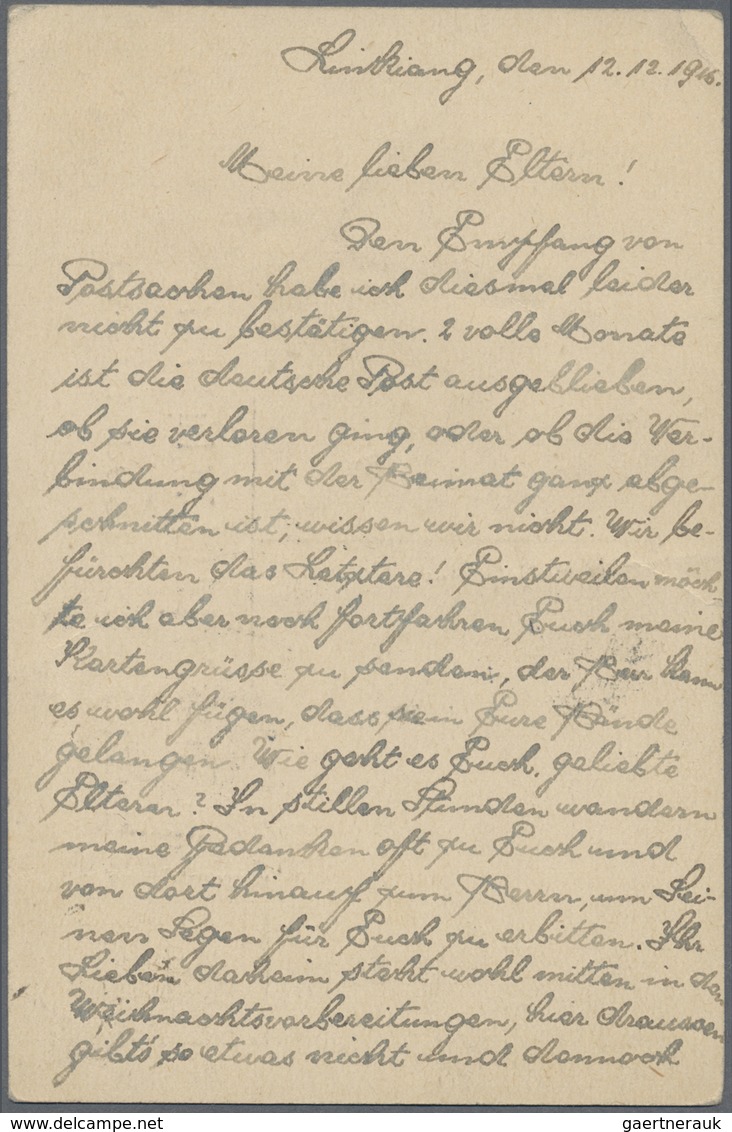 Linkiang, den 12.12.1916.
Meine lieben Eltern!
Den Empfang von
Postsachen habe ich diesmal leider
nicht zu bestätigen. 2 volle Monate
ist die deutsche Post ausgeblieben,
ob sie verloren ging, oder ob die Ver-
bindung mit der Heimat ganz abge-
schnitten ist, wissen wir nicht. Wir be-
fürchten das Letztere! Einstweilen möch-
te ich aber noch fortfahren Euch meine
Kartengrüsse zu senden, der Herr kann
es wohl fügen, dass sie in Eure Hände
gelangen. Wie geht es Euch, geliebte
Elteren? In stillen Stunden wandern
meine Gedanken oft zu Euch und
von dort hinauf zum Herrn, um Sei-
nen Segen für Euch zu erbitten. Ihr
Lieben daheim steht wohl mitten in den
Weihnachtsvorbereitungen, hier draussen
gibt's so etwas nicht und dennoch
gaertnerauk